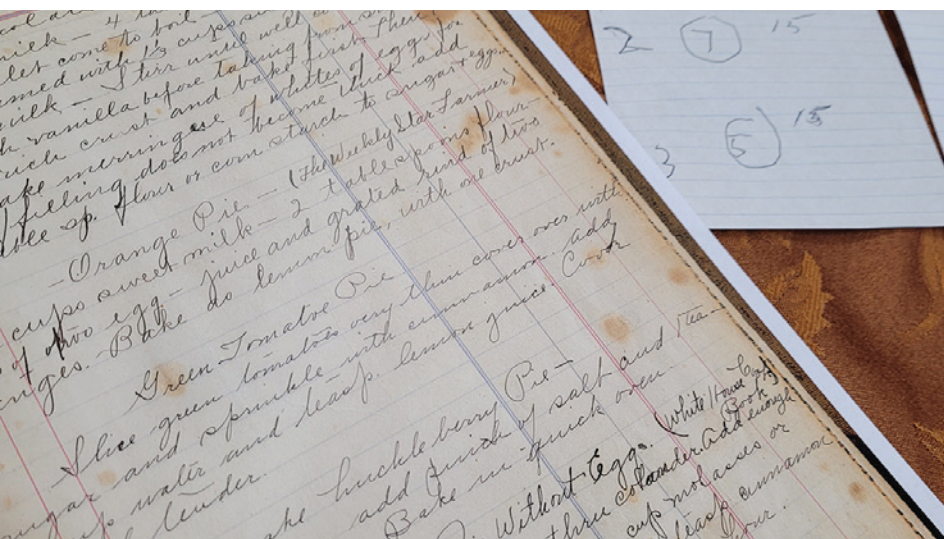 milk - 4
let come to boil
med with 1½ cups
milk - Stirr until well
vanilla before taking from
rich crust and bake just
ake merringue of whites of egg, for
filling does not become thick add
flour or corn starch to sugar & eggs.
- Orange Pie - (The Weekly Star Farmer)
cups sweet milk - 2 tablespoons flour -
of two egg - juice and grated rind of two
nges. Bake as lemon pie, with one crust.
Green Tomatoe Pie
Slice green tomatoes very thin cover over with
ugar and sprinkle with cinnamon. add
water and teasp. lemon juice. Cook
tender.
ake huckleberry Pie -
add pinch of salt and 1 tea-
Bake in quick oven
Without Eggs. (White House Cook Book)
thru colander. add enough
cup molasses or
teasp cinnamon
flour.
2 7 15
3 5 15